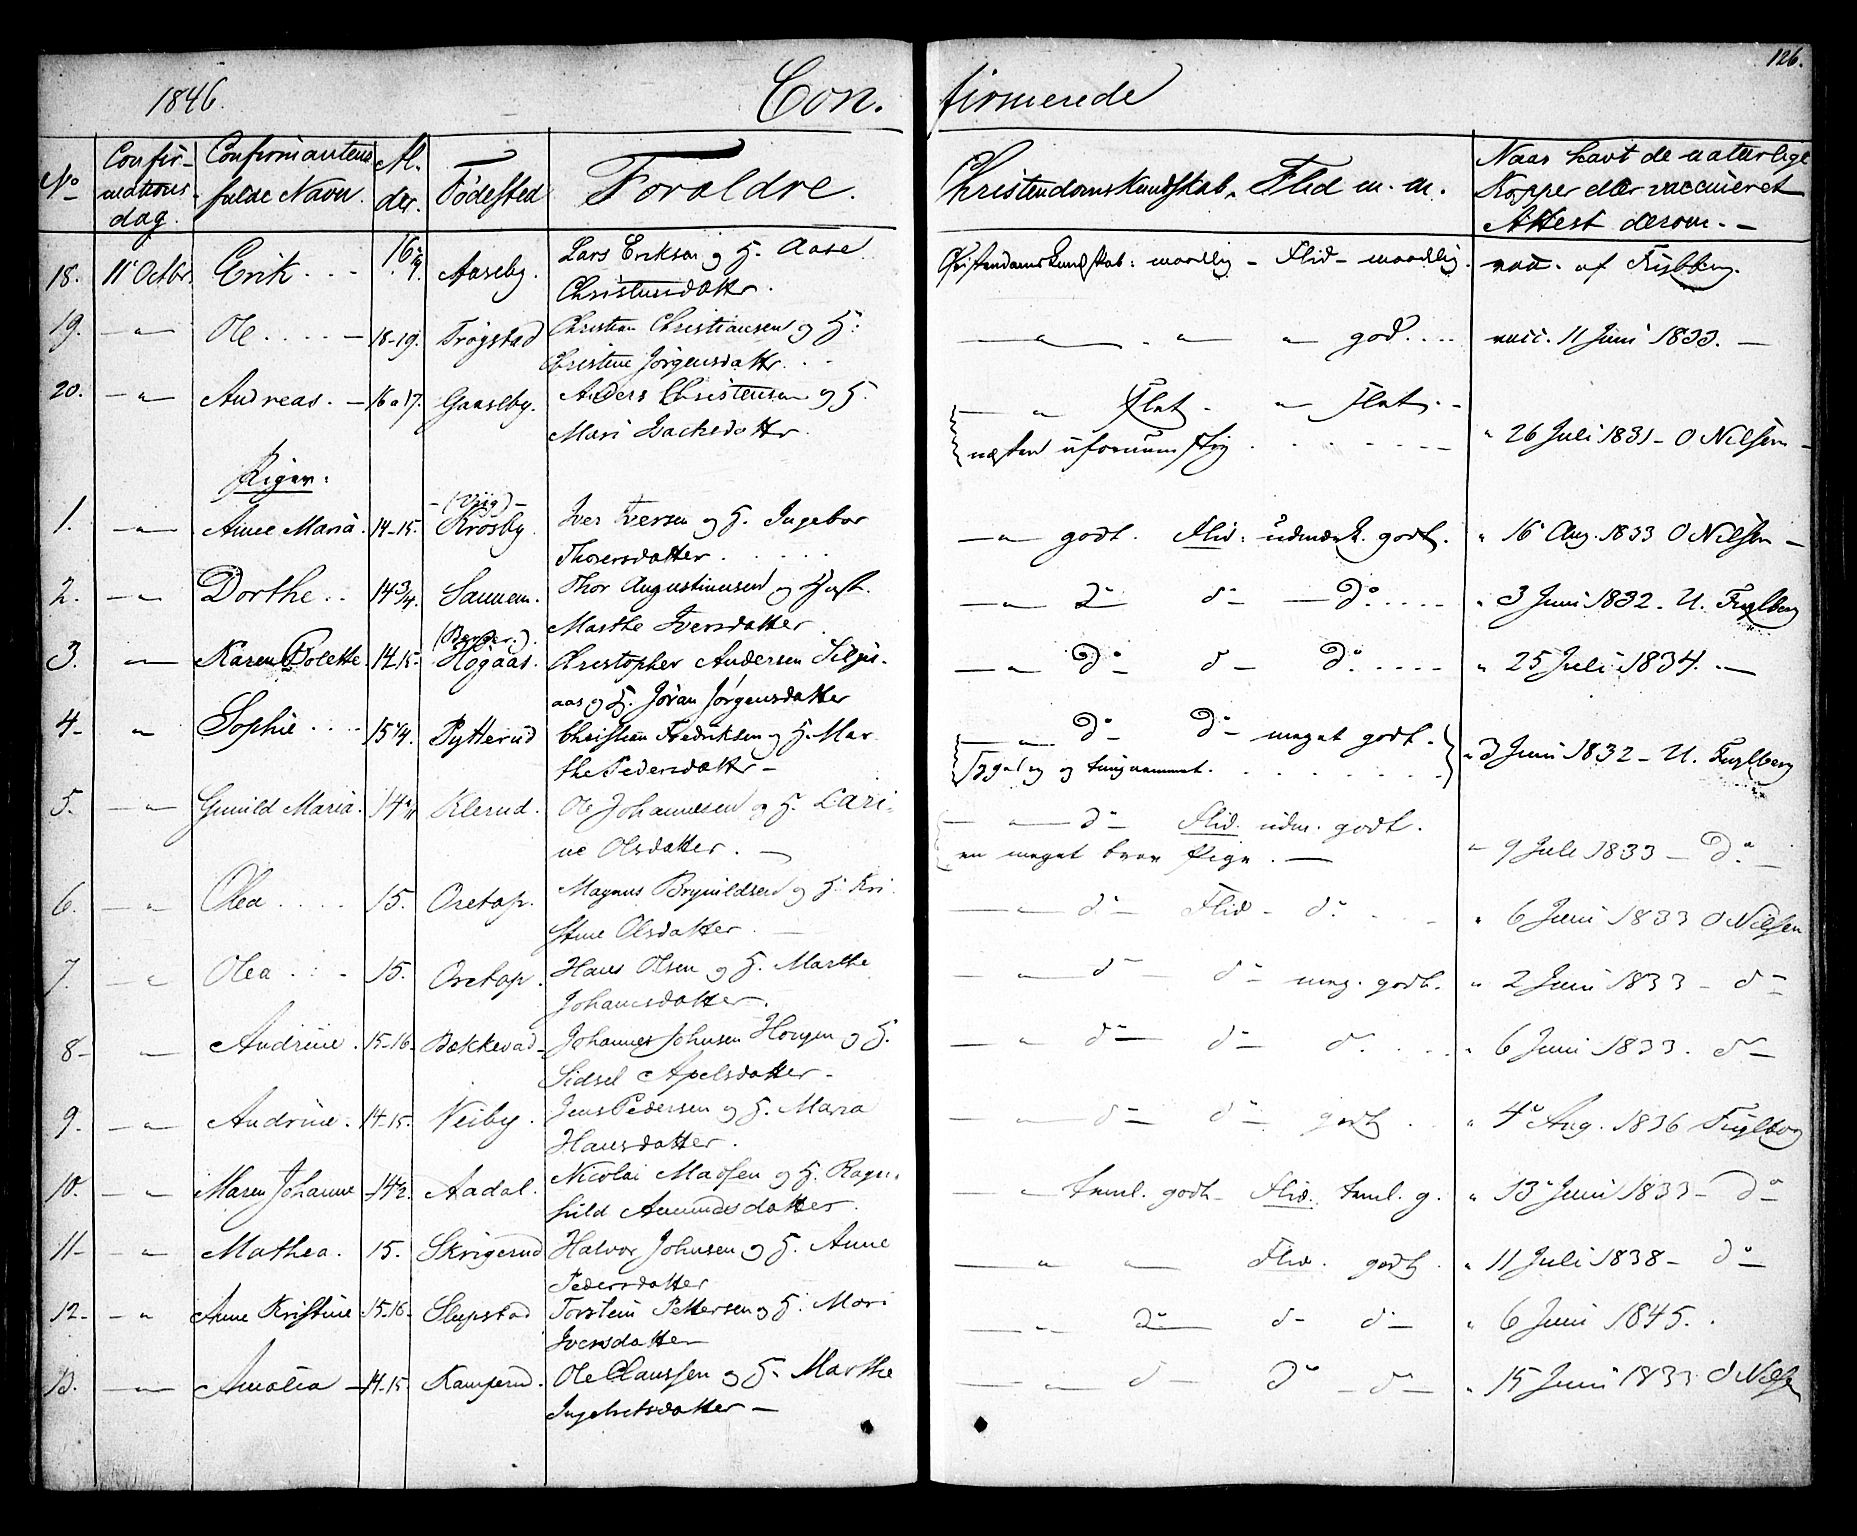 126.
1846. Con. firmerende
No Confir- Confirmantens Al- Fødested Forældre. Christendomskundskab, Flid m. m. Naar havt de naturlige
mations fulde Navn. der. Kopper eller vaccineret
dag. Attest derom. -
18. 11 Octbr. Erik. . . Aaseby. Lars Erikson og H. Aase Christendomskundskab: maadelig - Flid - maadelig. vacc. af Fuglberg.
Christensdatter.
19. - " - Ole. . . . - 18-19. Trøgstad Christian Christiansen og H: - " - . " - " god. . . . vacc. 11 Juni 1833. -
Christine Jørgensdatter. . .
20. - " - Andreas. - 16 a 17. Gaaseby. Anders Christensen og H. - " Slet. " Slet. -
Mari Lackedatter. næsten ufornuftig . - - - " 26 Juli 1831 - O Nilsen -
Piger.
(Viig) -
1. - " - Anne Maria. 14-15. Krosby. Iver Iversen og H. Ingebor - " - godt. Flid: udmærk. godt. " 16 Aug. 1833 O Nilsen -
Thorersdatter. . . . . .
2. - " - Dorthe. . . 14 3/4. Sannem. Thor Augustinusen og Hust. - " - do do - do. . . . . " 3 Juni 1832 - U. Fuglberg
Marthe Iversdatter
(Berger.)
3. - " - Karen Bolette. 14-15. Høgaas. Christopher Andersen - " - do - d - do. . . . . " 25 Juli 1834. -
aas og H. Jøran Jørgensdatter
4 - " Sophie . . . . 15 1/4. Pytterud Christian Fredriksen og H. Mar- - " - do - do - meget godt. " 3 Juni 1832 - U. Fuglberg
the Pedersdatter - og tungnemmet. . . . . . .
5. - " Gunild Maria. Klerud. Ole Johannesen og H. Lari- - " - do - Flid. udm. godt.
ne Olsdatter. - en meget brav Pige. - " 9 Juli 1833 - do. -
6. - " - Olea . . . . 15. Oretop. Magnus Brynildsen og H. Kri- - " - do - Flid - do. . . - " 6 Juni 1833 O Nilsen
stine Olsdatter. -
7. - " Olea . : - 15. Oretop. Hans Olsen og H. Marthe - " - do do - meg. godt. " 2 Juni 1833 - do
Johannesdatter.
8 - - " - Andrine. 15-16. Bækkevad - Johannes Johnsen Hougen og H. - " - do - do - do. . . . " 6 Juni 1833. do -
Sidsel Apelsdatter -
9. - " - Andrine. 14-15. Neiby. Jens Pedersen og H. Maria - " - do - do - godt . . " 4 Aug. 1836 Fuglberg
Hansdatter.
10. - " Maren Johanne 14 1/2. Aadal. Nicolai Madsen og H. Ragn- - " teml. godt - Flid. teml. g. " 13 Juni 1833 - do -
hild Amundsdatter.
11 - - " Mathea. 15. Skrigerud Halvor Johnsen og H. Anne - " - Flid. godt. " 11 Juli 1838 - do -
Pedersdatter
12 - - " Anne Kristine 15-16 - Slupstad Torstein Pettersen og H. Mari - " do - d - do - " 6 Juni 1845. .
Iversdatter
13. - " - Amalia - 14-15. Kamperud. Ole Claussen og H. Marthe - " d - do - d - " 15 Juni 1833 O Nilse
Ingebretsdatter -